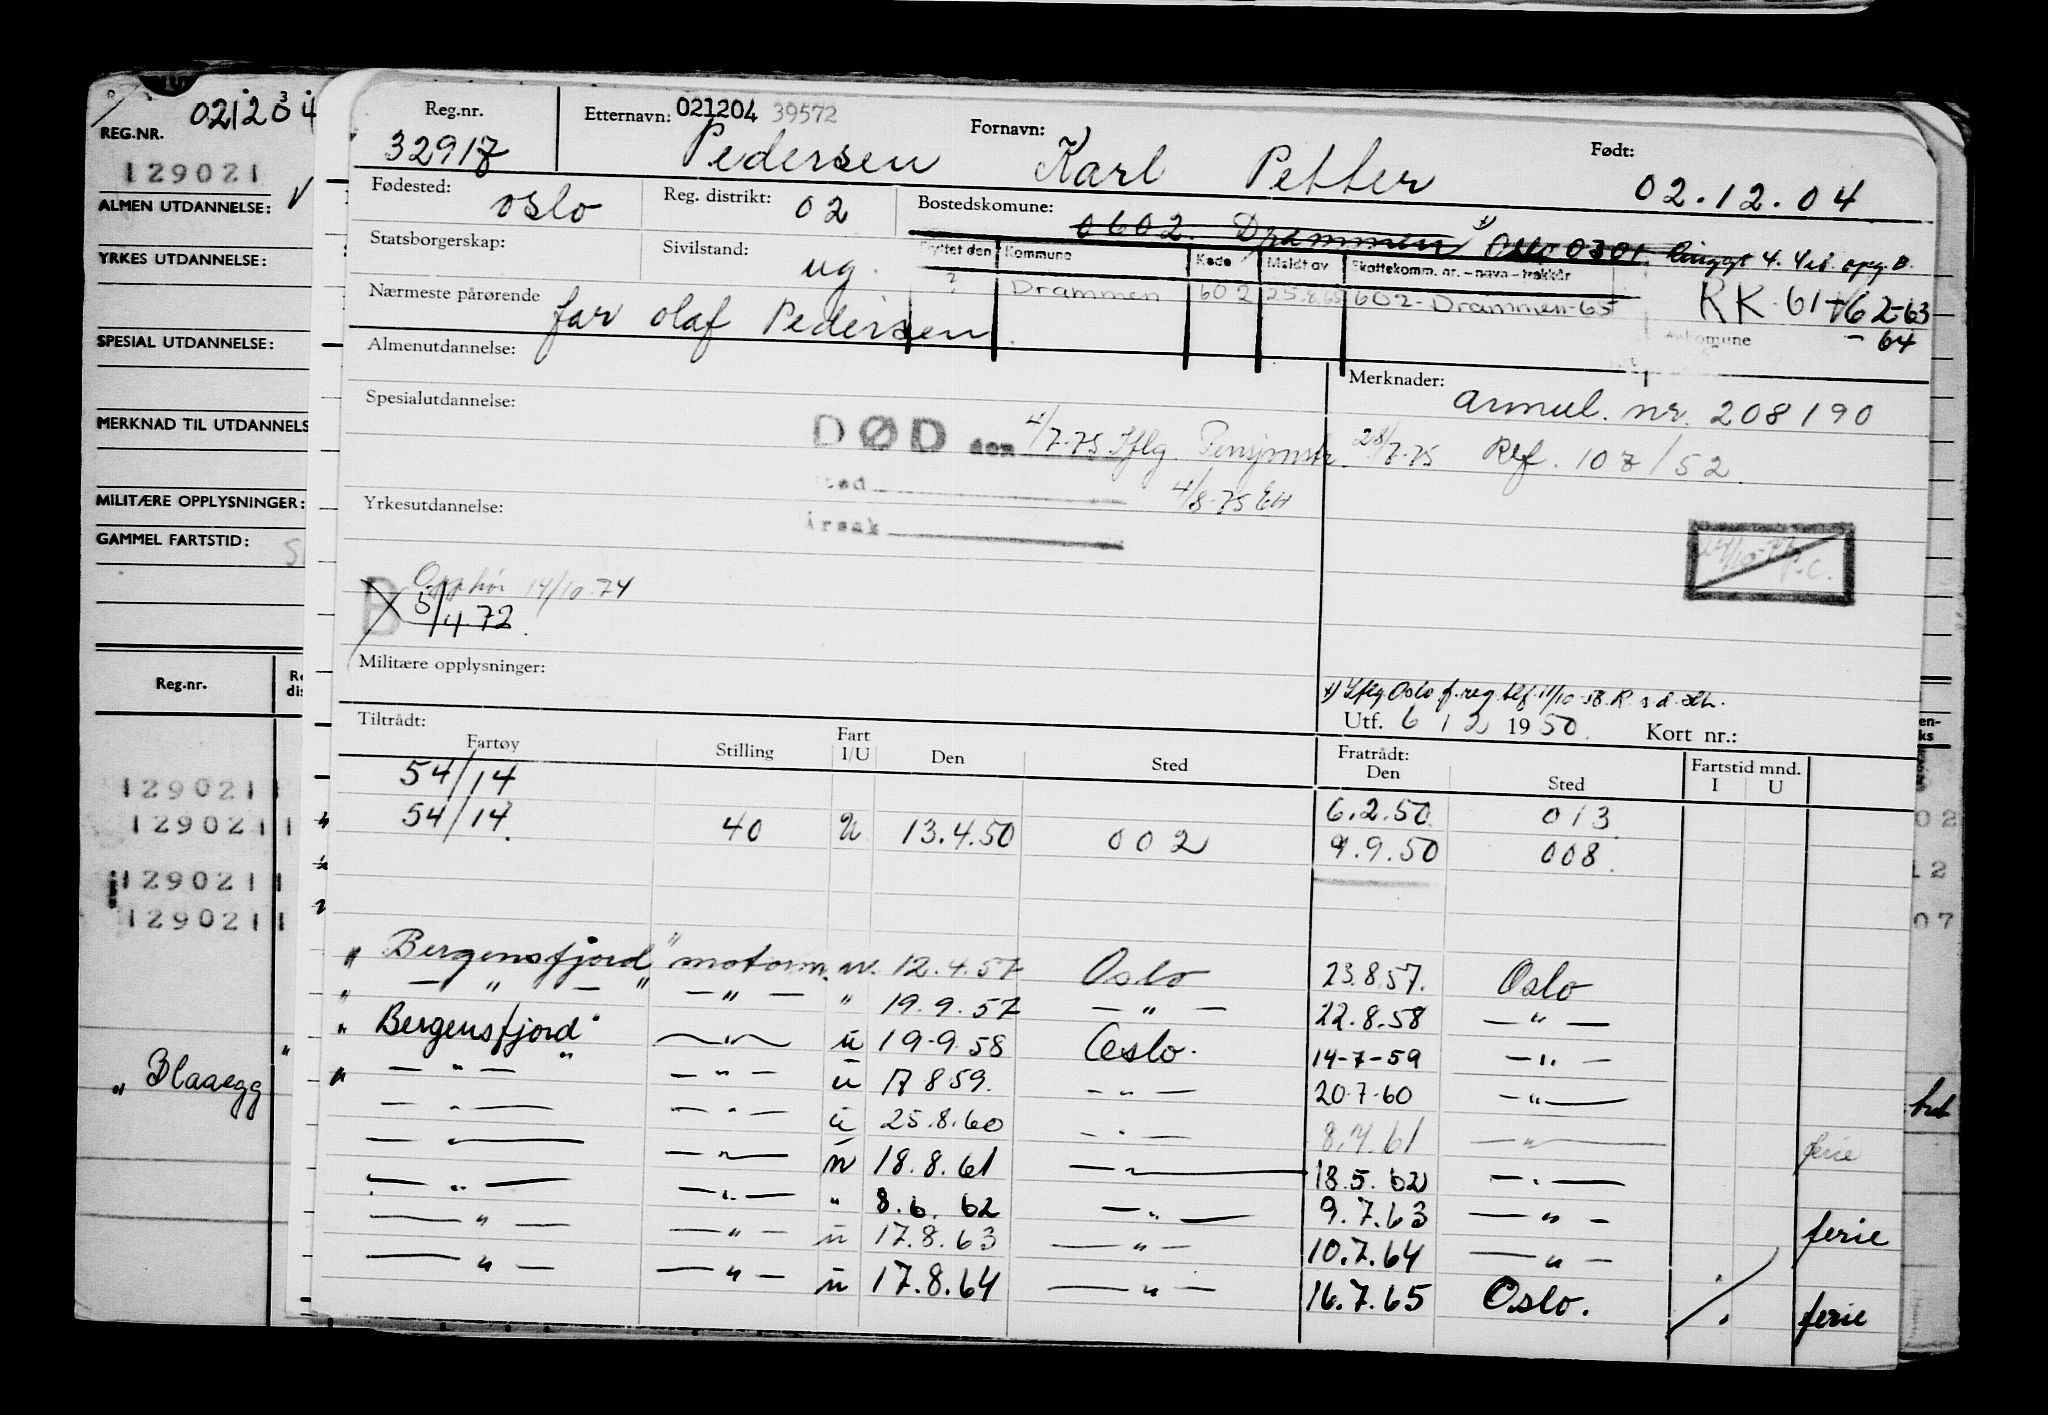 021204
REG.NR.
129021
ALMEN UTDANNELSE:
YRKES UTDANNELSE:
SPESIAL UTDANNELSE:
MERKNAD TIL UTDANNELS
MILITÆRE OPPLYSNINGER:
GAMMEL FARTSTID:
Reg.nr.
1290211
1290211
1290211
1290211
" Blaaegg "
Reg.nr. Etternavn: 021204 39572 Fornavn: Født:
32917 Pedersen Karl Petter 02.12.04
Fødested: Oslo Reg. distrikt: 02 Bostedskommune: 0602. Drammen x) Oslo 0301
Statsborgerskap: Sivilstand: ug. Flyttet den Kommune Kode Meldt av Skattekomm. nr. - navn - trekkår
? Drammen 602 25.8.65 602-Drammen-65 RK-61+62-63
- 64
Nærmeste pårørende far Olaf Pedersen
Almenutdannelse: Merknader:
annul. nr. 208190
Spesialutdannelse: DØD den 4/7-75 Iflg. Pensjonstr. 28/7-75 Ref. 107/52
Sted 4/8-75 EH
Yrkesutdannelse: Årsak
B Opphør 14/10.74
5/4.72.
Militære opplysninger:
Utf. 6/2 1950. Kort nr.:
Tiltrådt: Fratrådt:
Fartøy Stilling Fart I/U Den Sted Den Sted Fartstid mnd. I U
54/14 6.2.50 013
54/14. 40 U 13.4.50 002 9.9.50 008.
" Bergensfjord" motorm. u. 12.4.57 Oslo 23.8.57. Oslo
" — " — " — " — " 19.9.57 — " — 22.8.58 — " —
" Bergensfjord" — " — u 19-9.58 Oslo. 14-7-59 — " —
" — " — " — " — u 17 8 59. — " — 20.7.60 — " —
— " — — " — u 25.8.60 — " — 8.7.61 — " — ferie
— " — — " — u 18.8.61 — " — 18.5.62 — " —
— " — — " — " 8.6.62 — " — 9.7.63 — " — ferie
— " — — " — u 17.8.63 — " — 10.7.64 — " —
— " — — " — u 17.8.64 — " — 16.7.65 Oslo. ferie